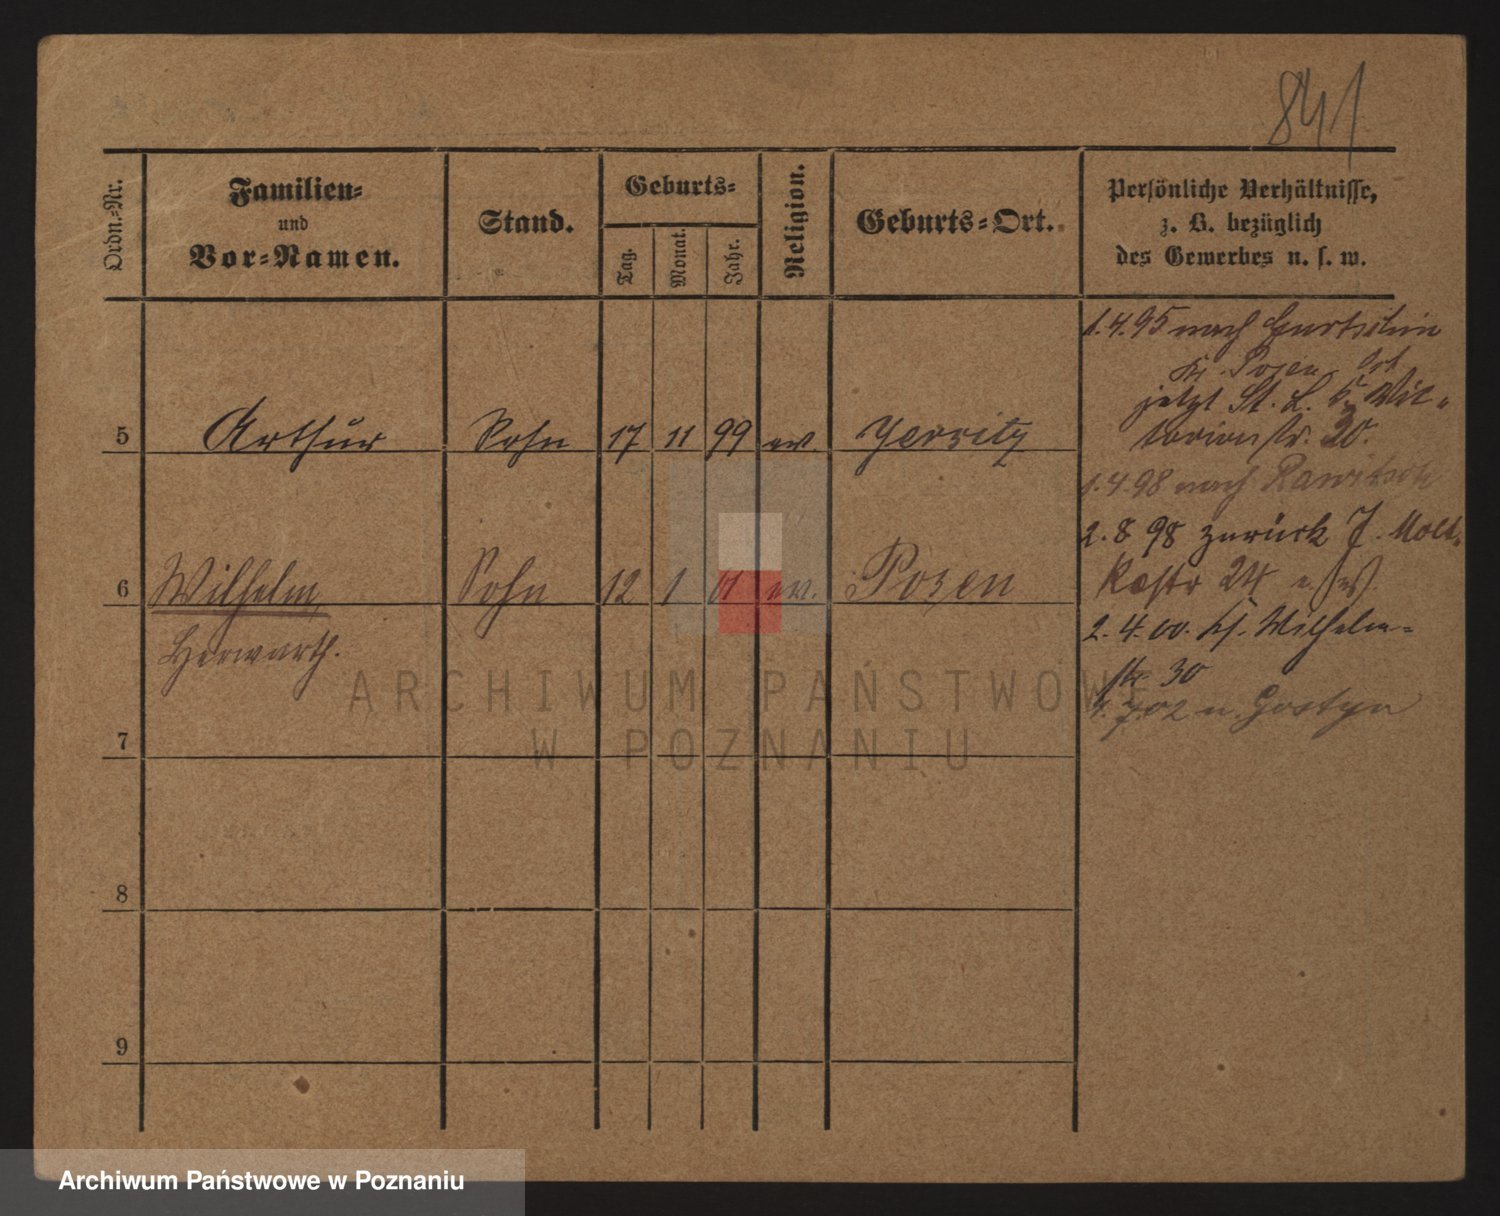 841
Ordn.-Nr.
Familien-
und
Vor-Namen.
Stand.
Geburts-
Tag.
Monat.
Jahr.
Religion.
Geburts-Ort.
Persönliche Verhältnisse,
z. B. bezüglich
des Gewerbes u. s. w.
5 Arthur Sohn 17 11 99 ev. Jerzitz
6 Wilhelm Sohn 12 1 01 ev. Posen
Herwarth.
7
8
9
1.4.95 nach Gurtschin
Kr. Posen
jetzt St. L. Vic-
toriastr. 20.
1.4.98 nach Rawitsch
2.8 98 zurück J. Molt-
kestr 24
2.4.00. Wilhelm-
str 30
7.02 n. Gostyn
ARCHIWUM PAŃSTWOWE
W POZNANIU
Archiwum Państwowe w Poznaniu